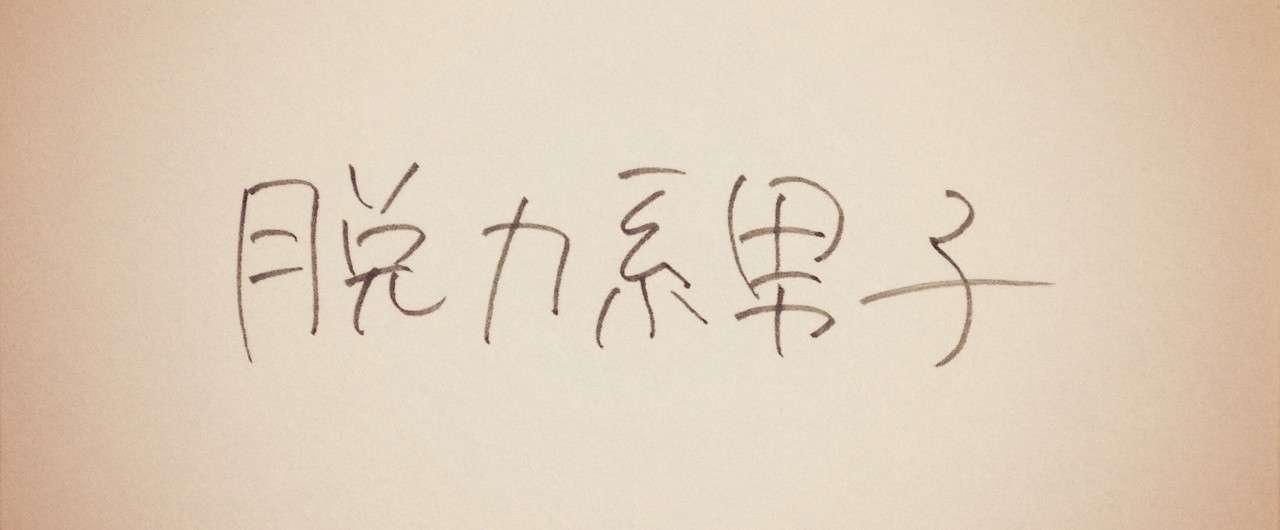 脱力系男子